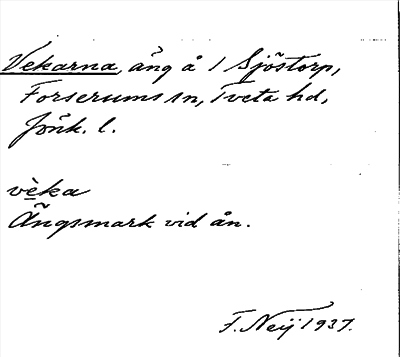 Vekarna, äng å 1 Sjöstorp,
Forserums sn, Tveta hd,
Jönk. l.
vèka
Ängsmark vid ån.
F. Neij 1937.